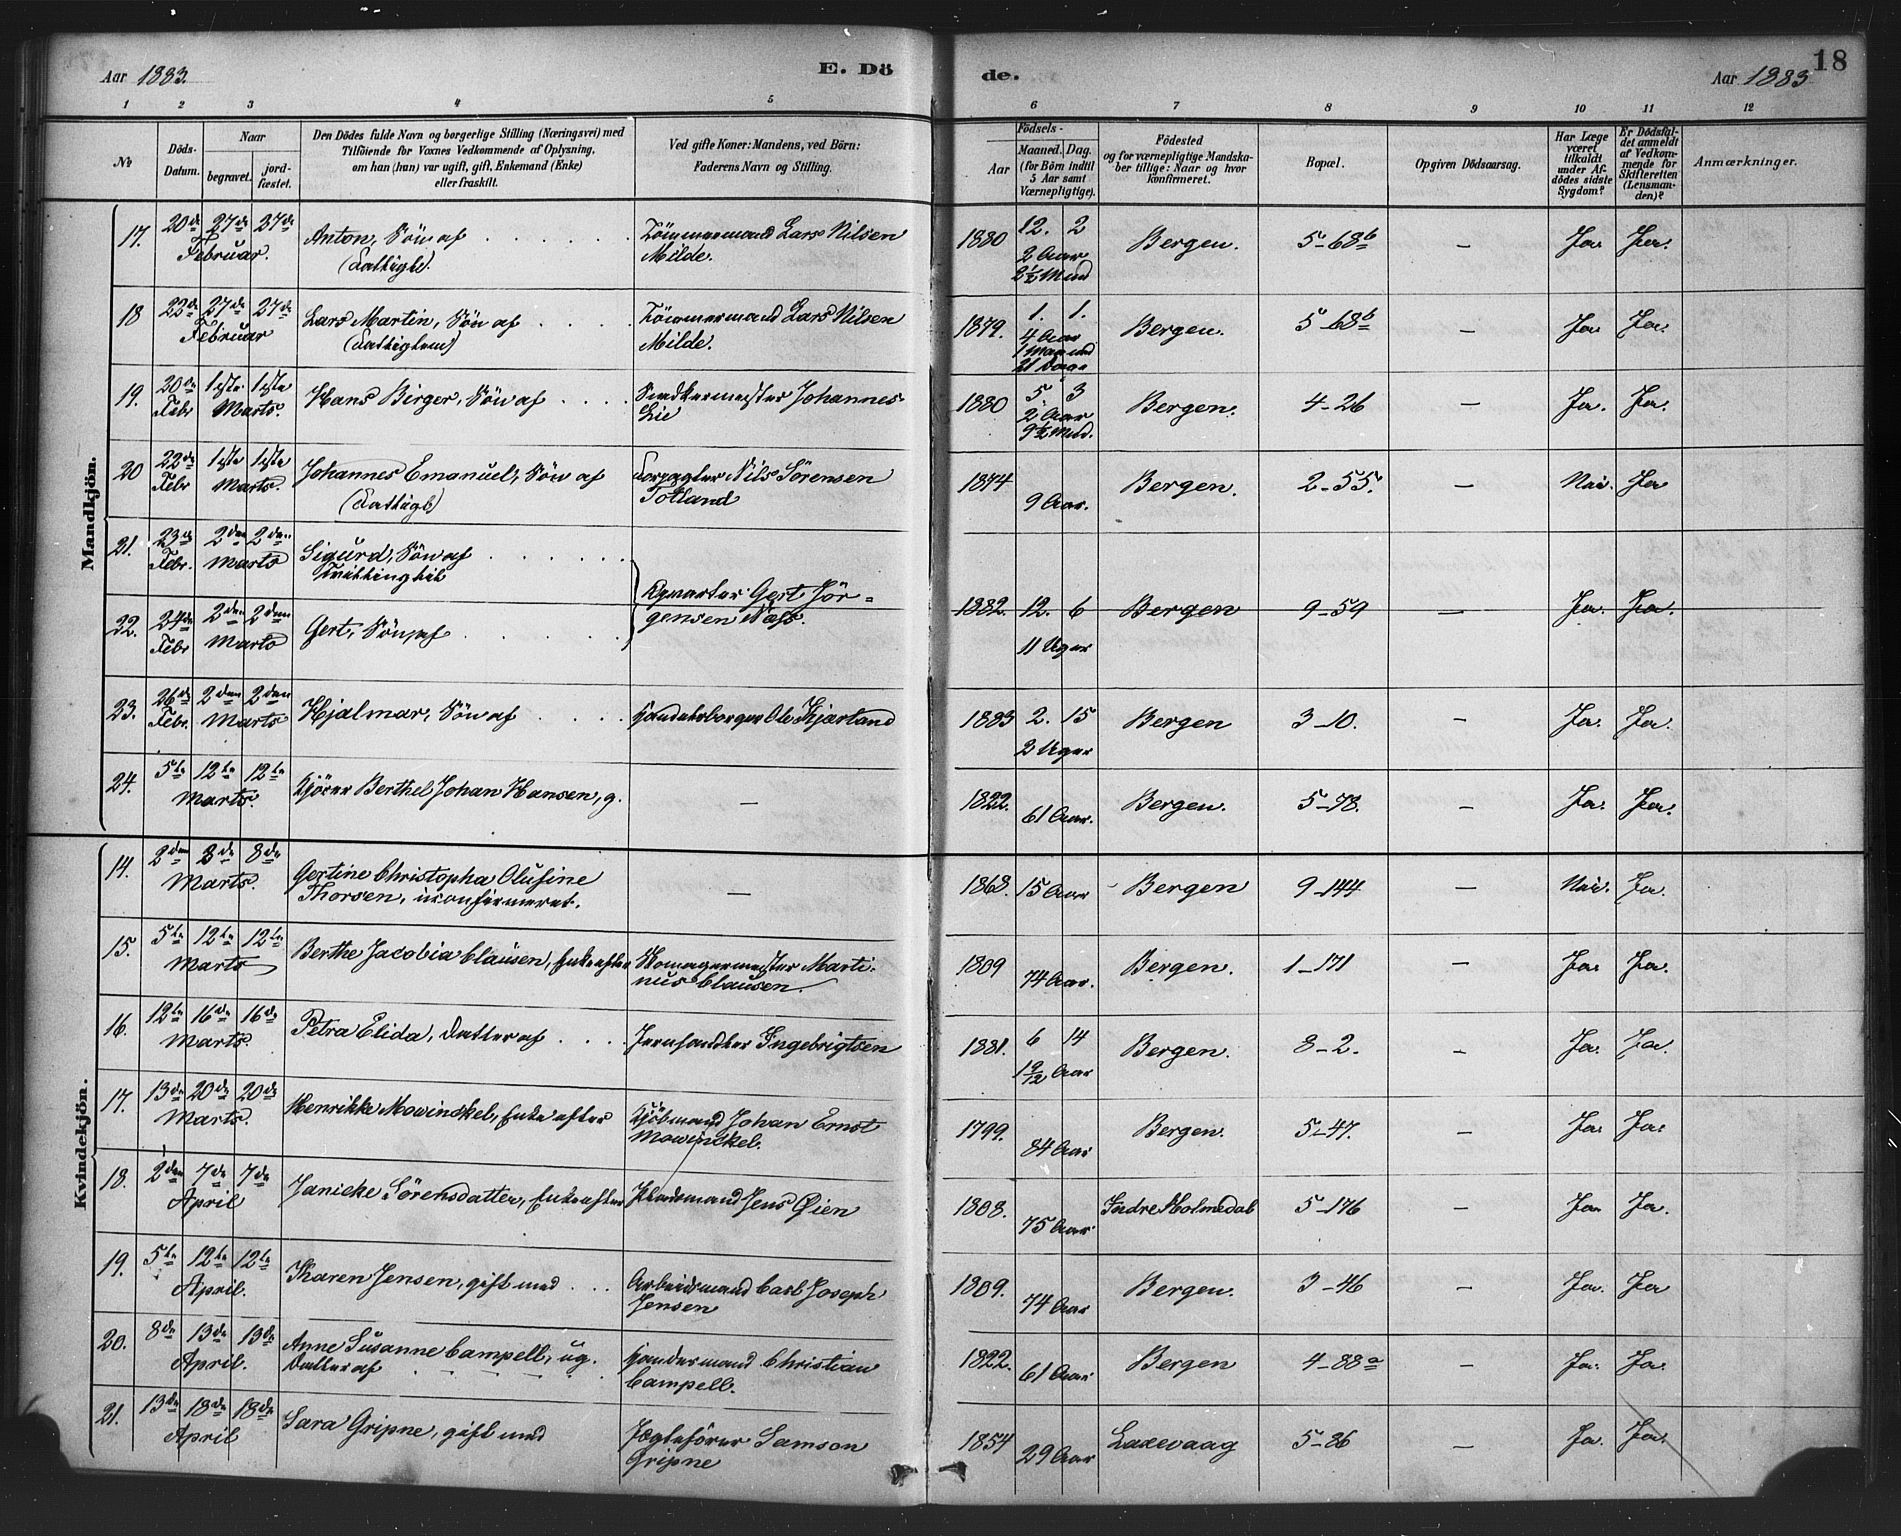 Aar 1883.
E. Dö
de.
18
Aar 1883
1 2 3 4 5 6 7 8 9 10 11 12
No
Döds-Datum.
Naar
begravet.
jordfæstet.
Den Dödes fulde Navn og borgerlige Stilling (Næringsvei) med
Tilföiende for Voxnes Vedkommende af Oplysning,
om han (hun) var ugift, gift, Enkemand (Enke)
eller fraskilt.
Ved gifte Koner: Mandens, ved Börn:
Faderens Navn og Stilling.
Födsels-
Aar
Maaned. Dag.
(for Börn indtil
5 Aar samt
Værnepligtige).
Födested
og for værnepligtige Mandska-
ber tillige: Naar og hvor
konfirmeret.
Bopæl.
Opgiven Dödsaarsag.
Har Læge
været
tilkaldt
under Af-
dödes sidste
Sygdom?
Er Dödsfal-
det anmeldt
af Vedkom-
mende for
Skifteretten
(Lensman-
den)?
Anmærkninger.
Mandkjön.
17. 20de 27de 27de Februar. Anton, Sön af (Fattigt). Tömmermand Lars Nilsen Milde. 1880 12. 2 2 Aar 2½ Mnd Bergen. 5-68b — Ja. Ja.
18 22de 27de 27de Februar Lars Martin, Sön af Tömmermand Lars Nilsen Milde. 1879. 1. 1. 4 Aar 1 Maaned 21 Dage Bergen. 5-68b — Ja Ja.
19. 20de Febr 1ste 1ste Marts. Hans Birger, Sön af Snedkermester Johannes Lie 1880 5. 3 2 Aar 9½ Mnd. Bergen. 4-26 — Ja. Ja.
20 22de Febr 1ste 1ste Marts. Johannes Emanuel, Sön af (Fattigt) Nils Sörensen Totland 1874 9 Aar. Bergen. 2-55. — Nei. Ja
21. 23de Febr. 2den 2den Marts Sigurd, Sön af Tvillinglil
22. 24de Febr 2den 2den Marts Gert, Sön af Gert Jör-
gensen Næss. 1882. 12. 6 11 Uger Bergen 9-59 — Ja. Ja.
23. 26de Febr. 2den 2den Marts Hjalmar, Sön af Handelsborger Ole Kjærland 1883 2. 15 2 Uger Bergen 3-10. — Ja. Ja.
24. 5te 12te 12te Marts Kjörer Berthel Johan Hansen, g. — 1822. 61 Aar. Bergen. 5-78. — Ja. Ja.
Kvindekjön.
14. 2den 8de 8de Marts. Gertine Christopha Olufine Thorsen, ukonfirmeret. — 1868. 15 Aar Bergen 9-144 — Nei. Ja.
15. 5te 12te 12te Marts Berthe Jacobia Clausen, Enke efter Skomagermester Marti-
nus Clausen. 1809 74 Aar. Bergen. 1-171 — Ja. Ja.
16. 12te 16de 16de Marts. Petra Elida, Datter af Ingebrigtsen 1881. 6 14 1 9/12 Aar Bergen. 8-2. — Ja. Ja.
17. 13de 20de 20de Marts. Henrikke Mowinckel, Enke efter Kjöbmand Johan Ernst Mowinckel. 1799. 84 Aar Bergen. 5-47. — Ja. Ja.
18. 2den 7de 7de April Janicke Sörensdatter, Enke efter Jens Öien 1808. 75 Aar Indre Holmedal 5-176 — Ja. Ja.
19. 5te 12te 12te April. Karen Jensen, gift med Arbeidsmand Carl Joseph Jensen 1809. 74 Aar Bergen. 3-46 — Ja. Ja
20. 8de 13de 13de April. Anne Susanne Campell, ug. Datter af Handelsmand Christian Campell. 1822. 61 Aar Bergen 4-88a — Ja. Ja.
21. 13de 18de 18de April Sara Gripne, gift med Jægteförer Samson Gripne 1854 29 Aar Laxevaag 5-86 — Ja. Ja.